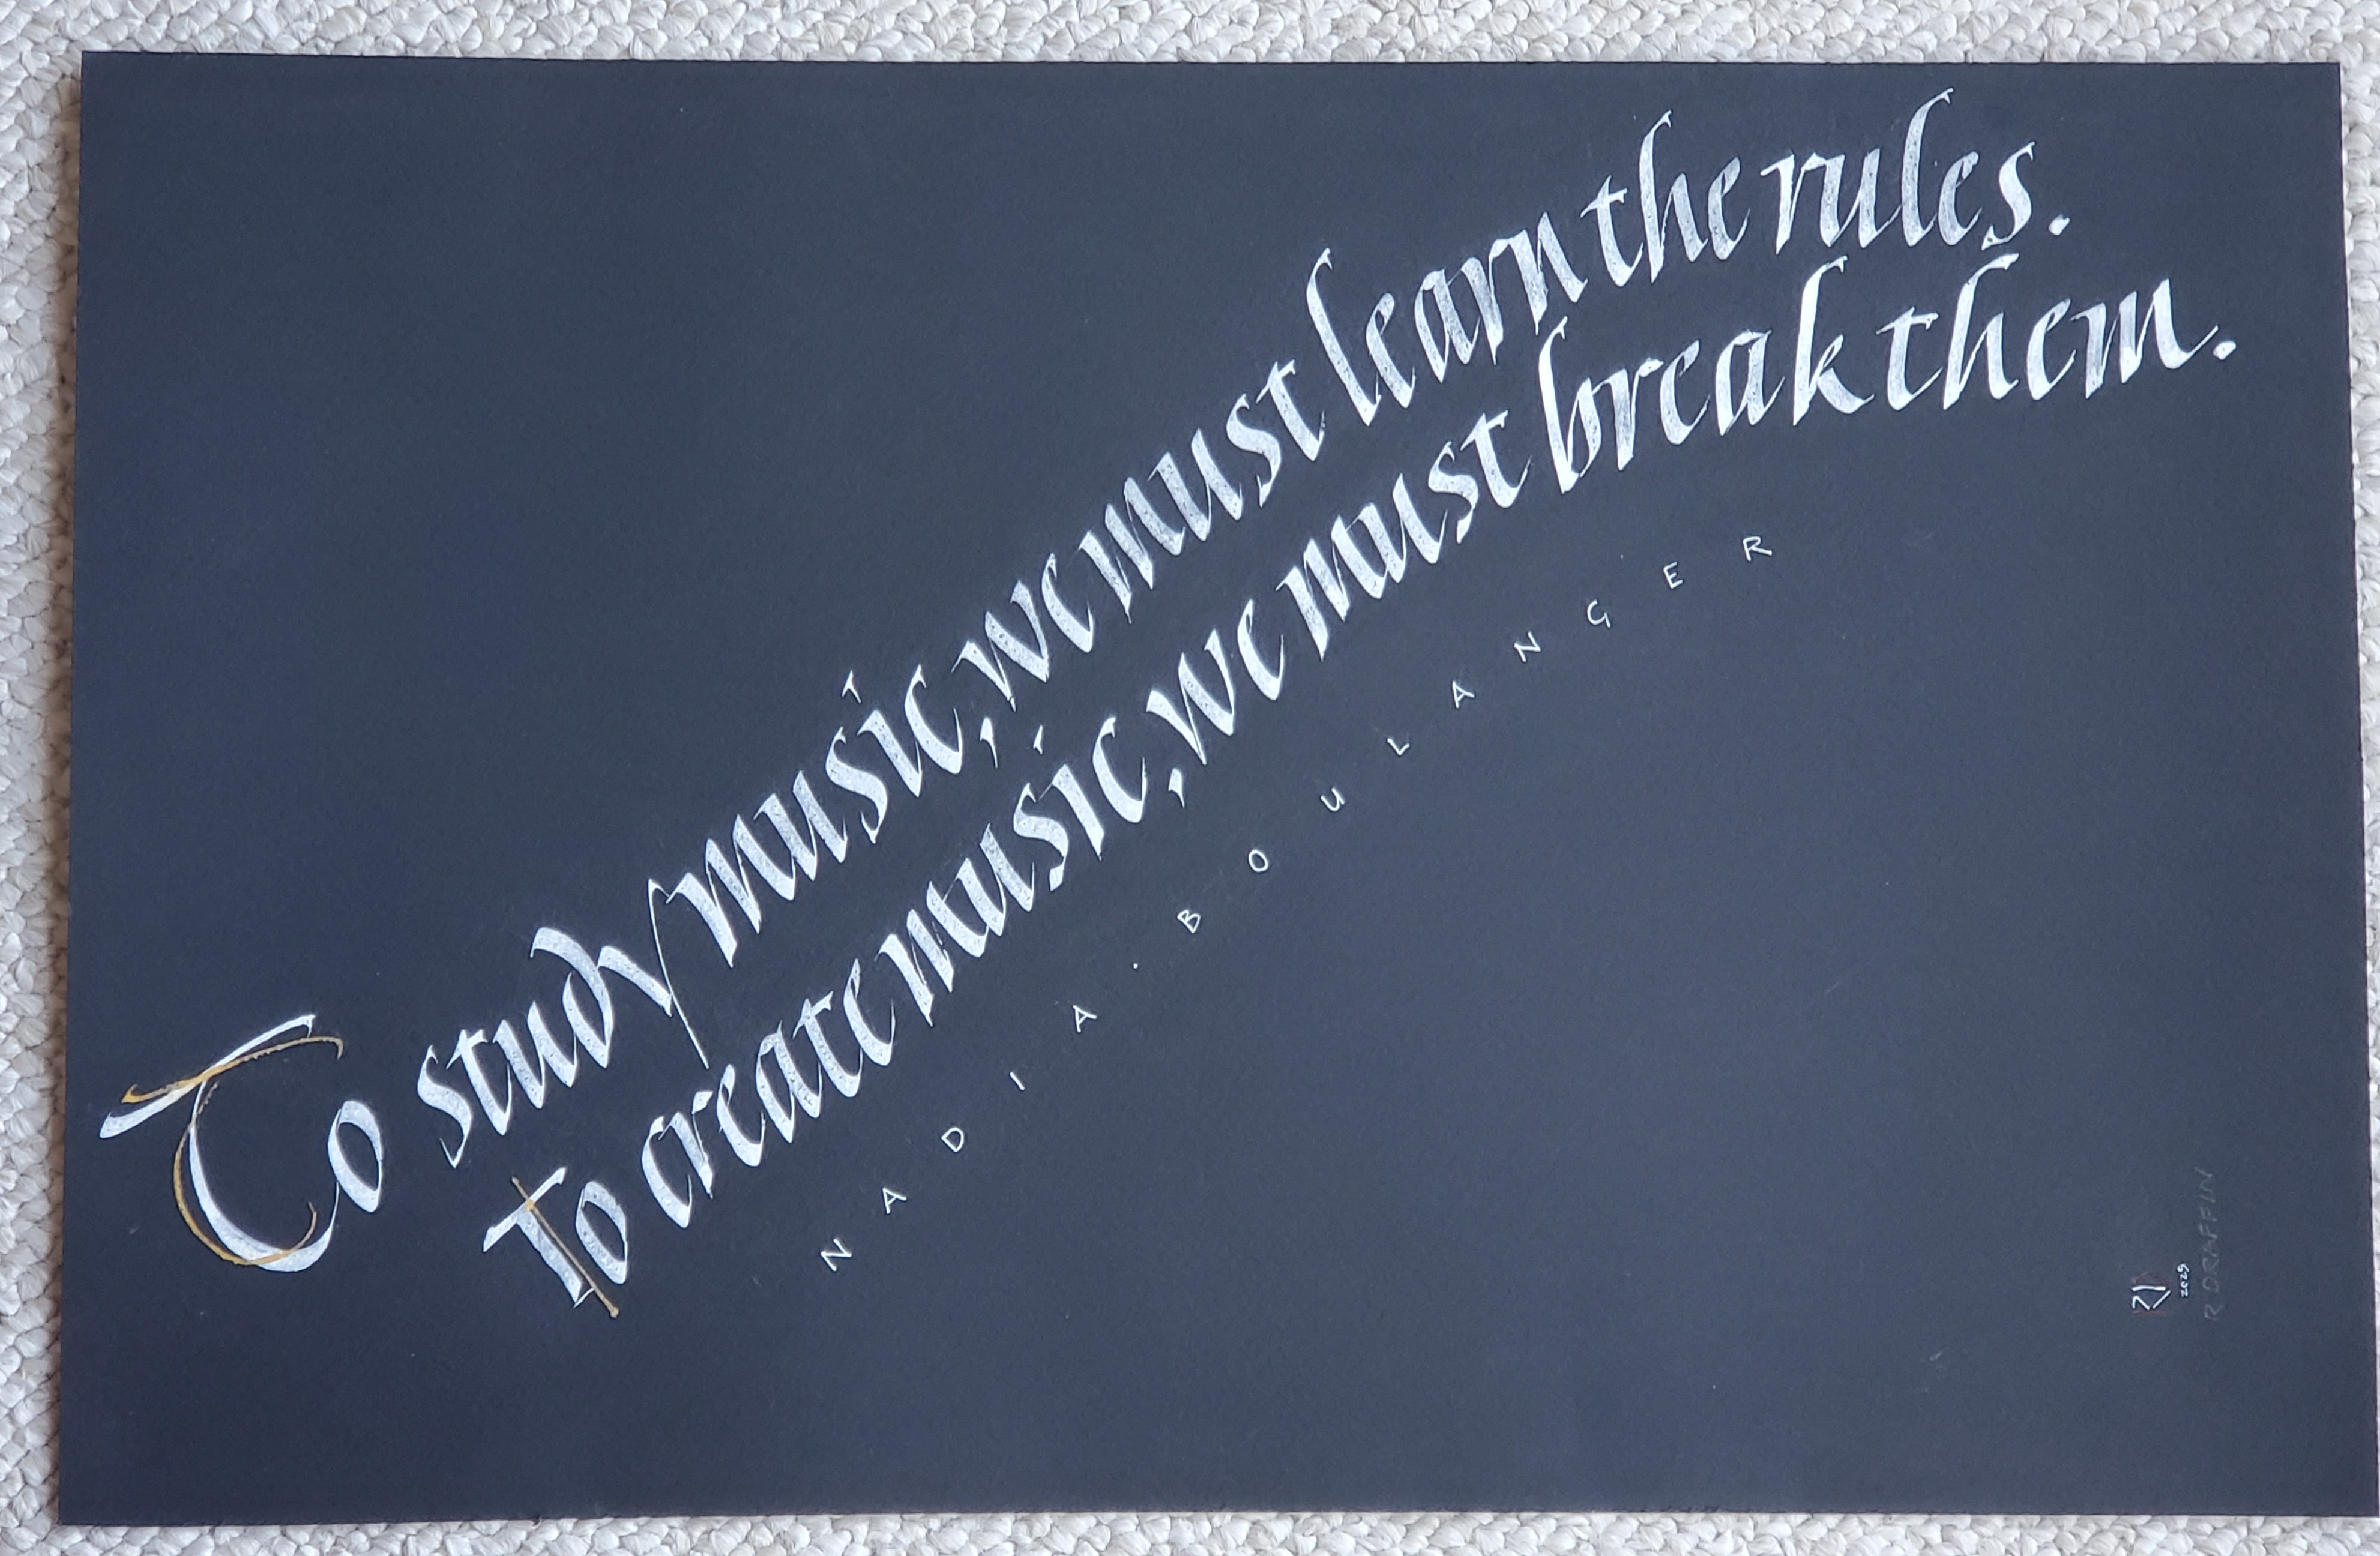 To study music, we must learn the rules.
To create music, we must break them.
NADIA · BOULANGER
2025
R DRAFFIN